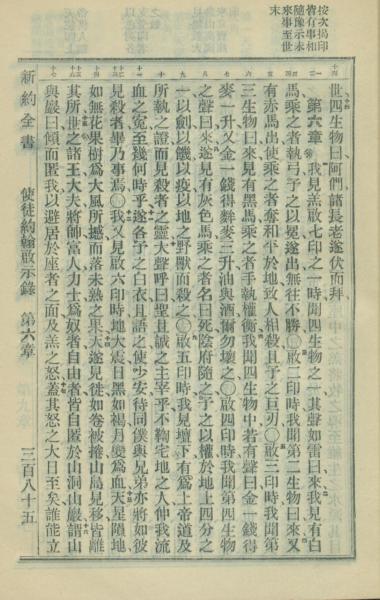 按次揭印
皆有事相
隨像示未
來事至世
末
世四生物曰阿們諸長老遂伏而拜
第六章 我見羔啟七印之一時聞四生物之一其聲如雷曰來我見有白
馬乘之者執弓予之以冕遂出無往不勝〇啟二印時我聞第二生物曰來又
有赤馬出使乘之者奪和平於地致人相殺且予之巨刃〇啟三印時我聞第
三生物曰來見有黑馬乘之者手執權衡我聞四生物中若有聲曰金一錢得
麥一升又金一錢得麰麥三升油與酒爾勿壞之〇啟四印時我聞第四生物
之聲曰來遂見有灰色馬乘之者名曰死陰府隨之予之以權於地上四分之
一以劍以饑以疫以地之野獸而殺之〇啟五印時我見壇下有為上帝道及
所執之證而見殺者之靈大聲呼曰聖且誠之主宰乎不鞫宅地之人伸我流
血之冤至幾何時乎遂各予之白衣且語之使少安待同僕與兄弟亦將如彼
見殺者畢乃事焉〇我又見啟六印時地大震日黑如褐月變為血天星隕地
如無花果樹為大風所撼而落未熟之果天遂見徙如卷被捲山島見移皆離
其所世之諸王大夫將帥富人力士為奴者自由者皆自匿於山洞山巖謂山
與巖曰傾而匿我以避居於座者之面及羔之怒蓋其怒之大日至矣誰能立
新約全書 使徒約翰啟示錄 第六章 三百八十五